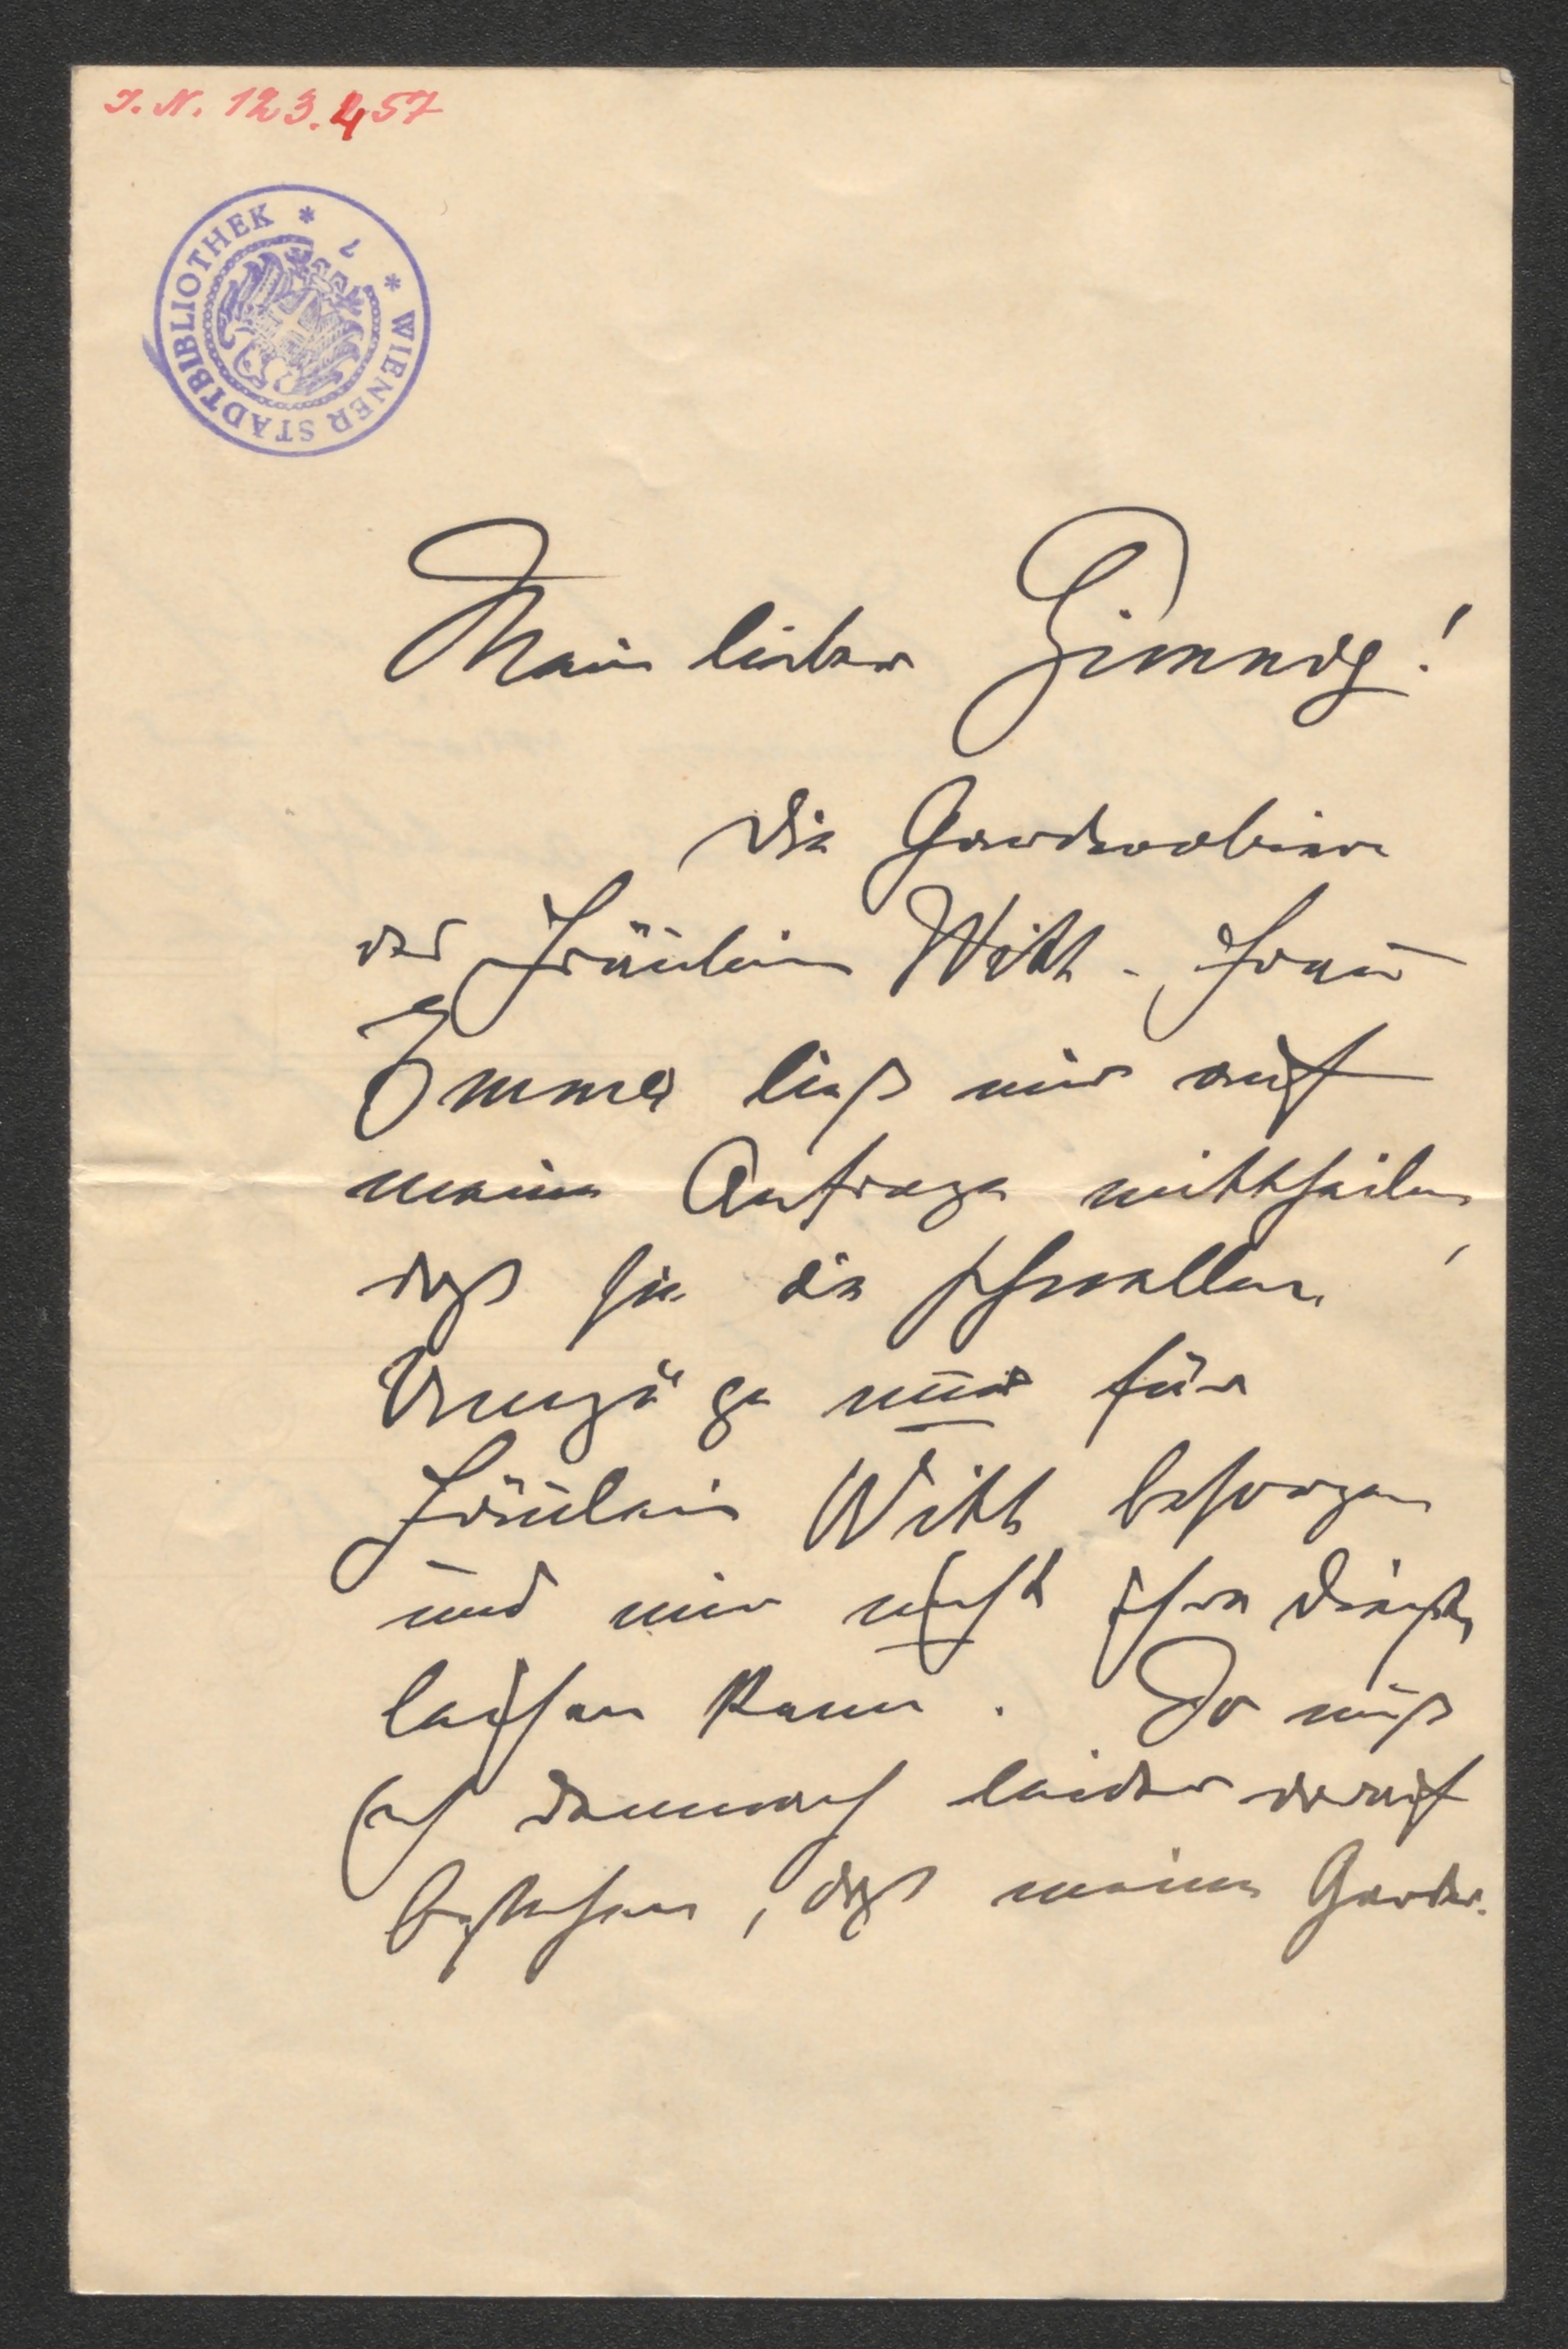 I. N. 123.457
* WIENER STADTBIBLIOTHEK *
Mein lieber
Die Garderobiere
des Fräulein Witt - Frau
Emma ließ mir auf
meine Anfrage mittheilen,
daß sie die schnellen
Umzüge nur für
Fräulein Witt besorgen
und mir nicht ihre Dienste
leisten kann. So muß
ich demnach leider darauf
bestehen, daß meine Garder-